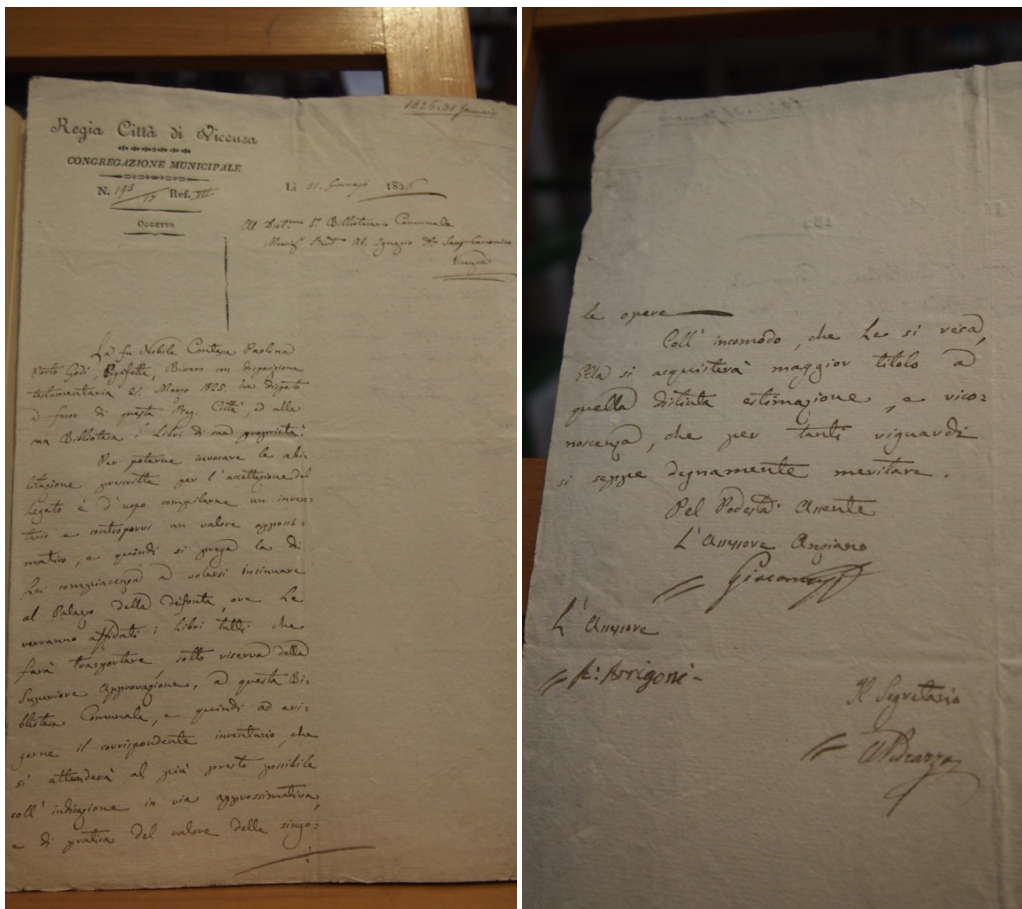 1826. 31 Gennaio
Regia Città di Vicenza
CONGREGAZIONE MUNICIPALE
N. 195 Ref. III
15
Li 31. Gennajo 1826
OGGETTO
Al Bibliotecario Comunale
Ab. Ignazio
Vicenza
La fu Nobile Contessa Paolina
Porto Godi, Pigafetta, Bissaro con disposizione
testamentaria 21. Marzo 1825. ha disposto
a favor di questa Reg. Città, ed alla
sua Biblioteca i Libri di sua proprietà.
Per poterne invocare le abi=
litazione prescritta per l'accettazione del
Legato è d'uopo compilarne un inven=
tario e contropporvi un valore approssi=
mativo, e quindi si prega la di
Lei compiacenza a volersi insinuare
al Palazzo della defonta, ove Le
verranno affidati i Libri tutti che
farà trasportare, sotto riserva della
Superiore Approvazione, a questa Bi=
blioteca Comunale, e quindi ad eri=
gerne il corrispondente inventario, che
si attenderà al più presto possibile
coll'indicazione in via approssimativa,
e di pratica del valore delle singo=
le opere
Coll'incomodo, che Le si reca,
Ella si acquisterà maggior titolo a
quella distinta estimazione, e rico=
noscenza, che per tanti riguardi
si seppe degnamente meritare.
Pel Podestà Assente
L'Assessore Anziano
L'Assessore
Arrigoni
Il Segretario